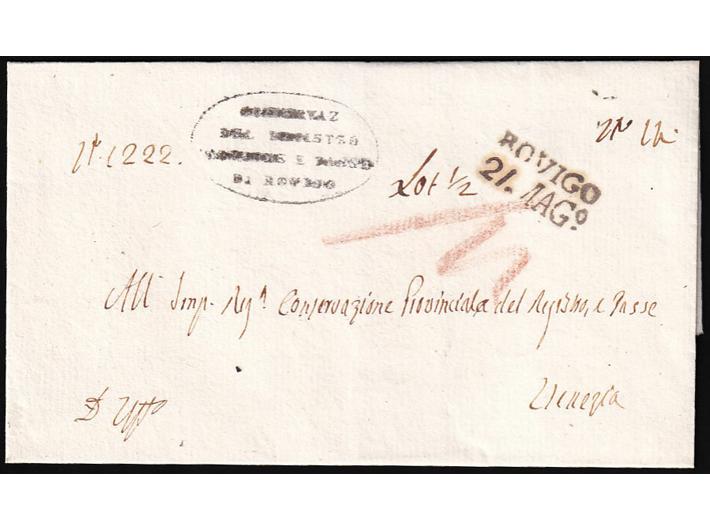 N.º 1222.
CONSERVAZ
DEL REGISTRO
E
DI ROVIGO
Lot 1/2
ROVIGO
21. MAGº
All' Imp. Regª Conservazione Provinciale del Registro, e Tasse
D' Uffº
Venezia